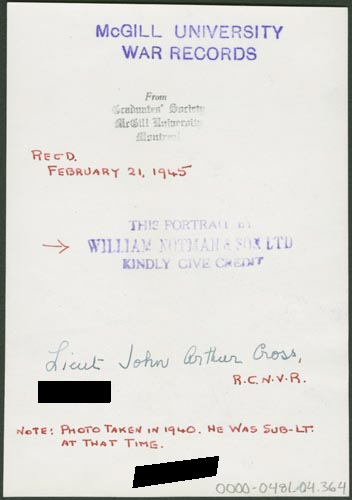 McGILL UNIVERSITY
WAR RECORDS
From
Graduates' Society
McGill University
Montreal
REC'D.
FEBRUARY 21, 1945
THIS PORTRAIT BY
→ WILLIAM NOTMAN & SON LTD
KINDLY GIVE CREDIT
Lieut John Arthur Cross,
R.C.N.V.R.
NOTE: PHOTO TAKEN IN 1940. HE WAS SUB-LT.
AT THAT TIME.
0000-0481.04.364